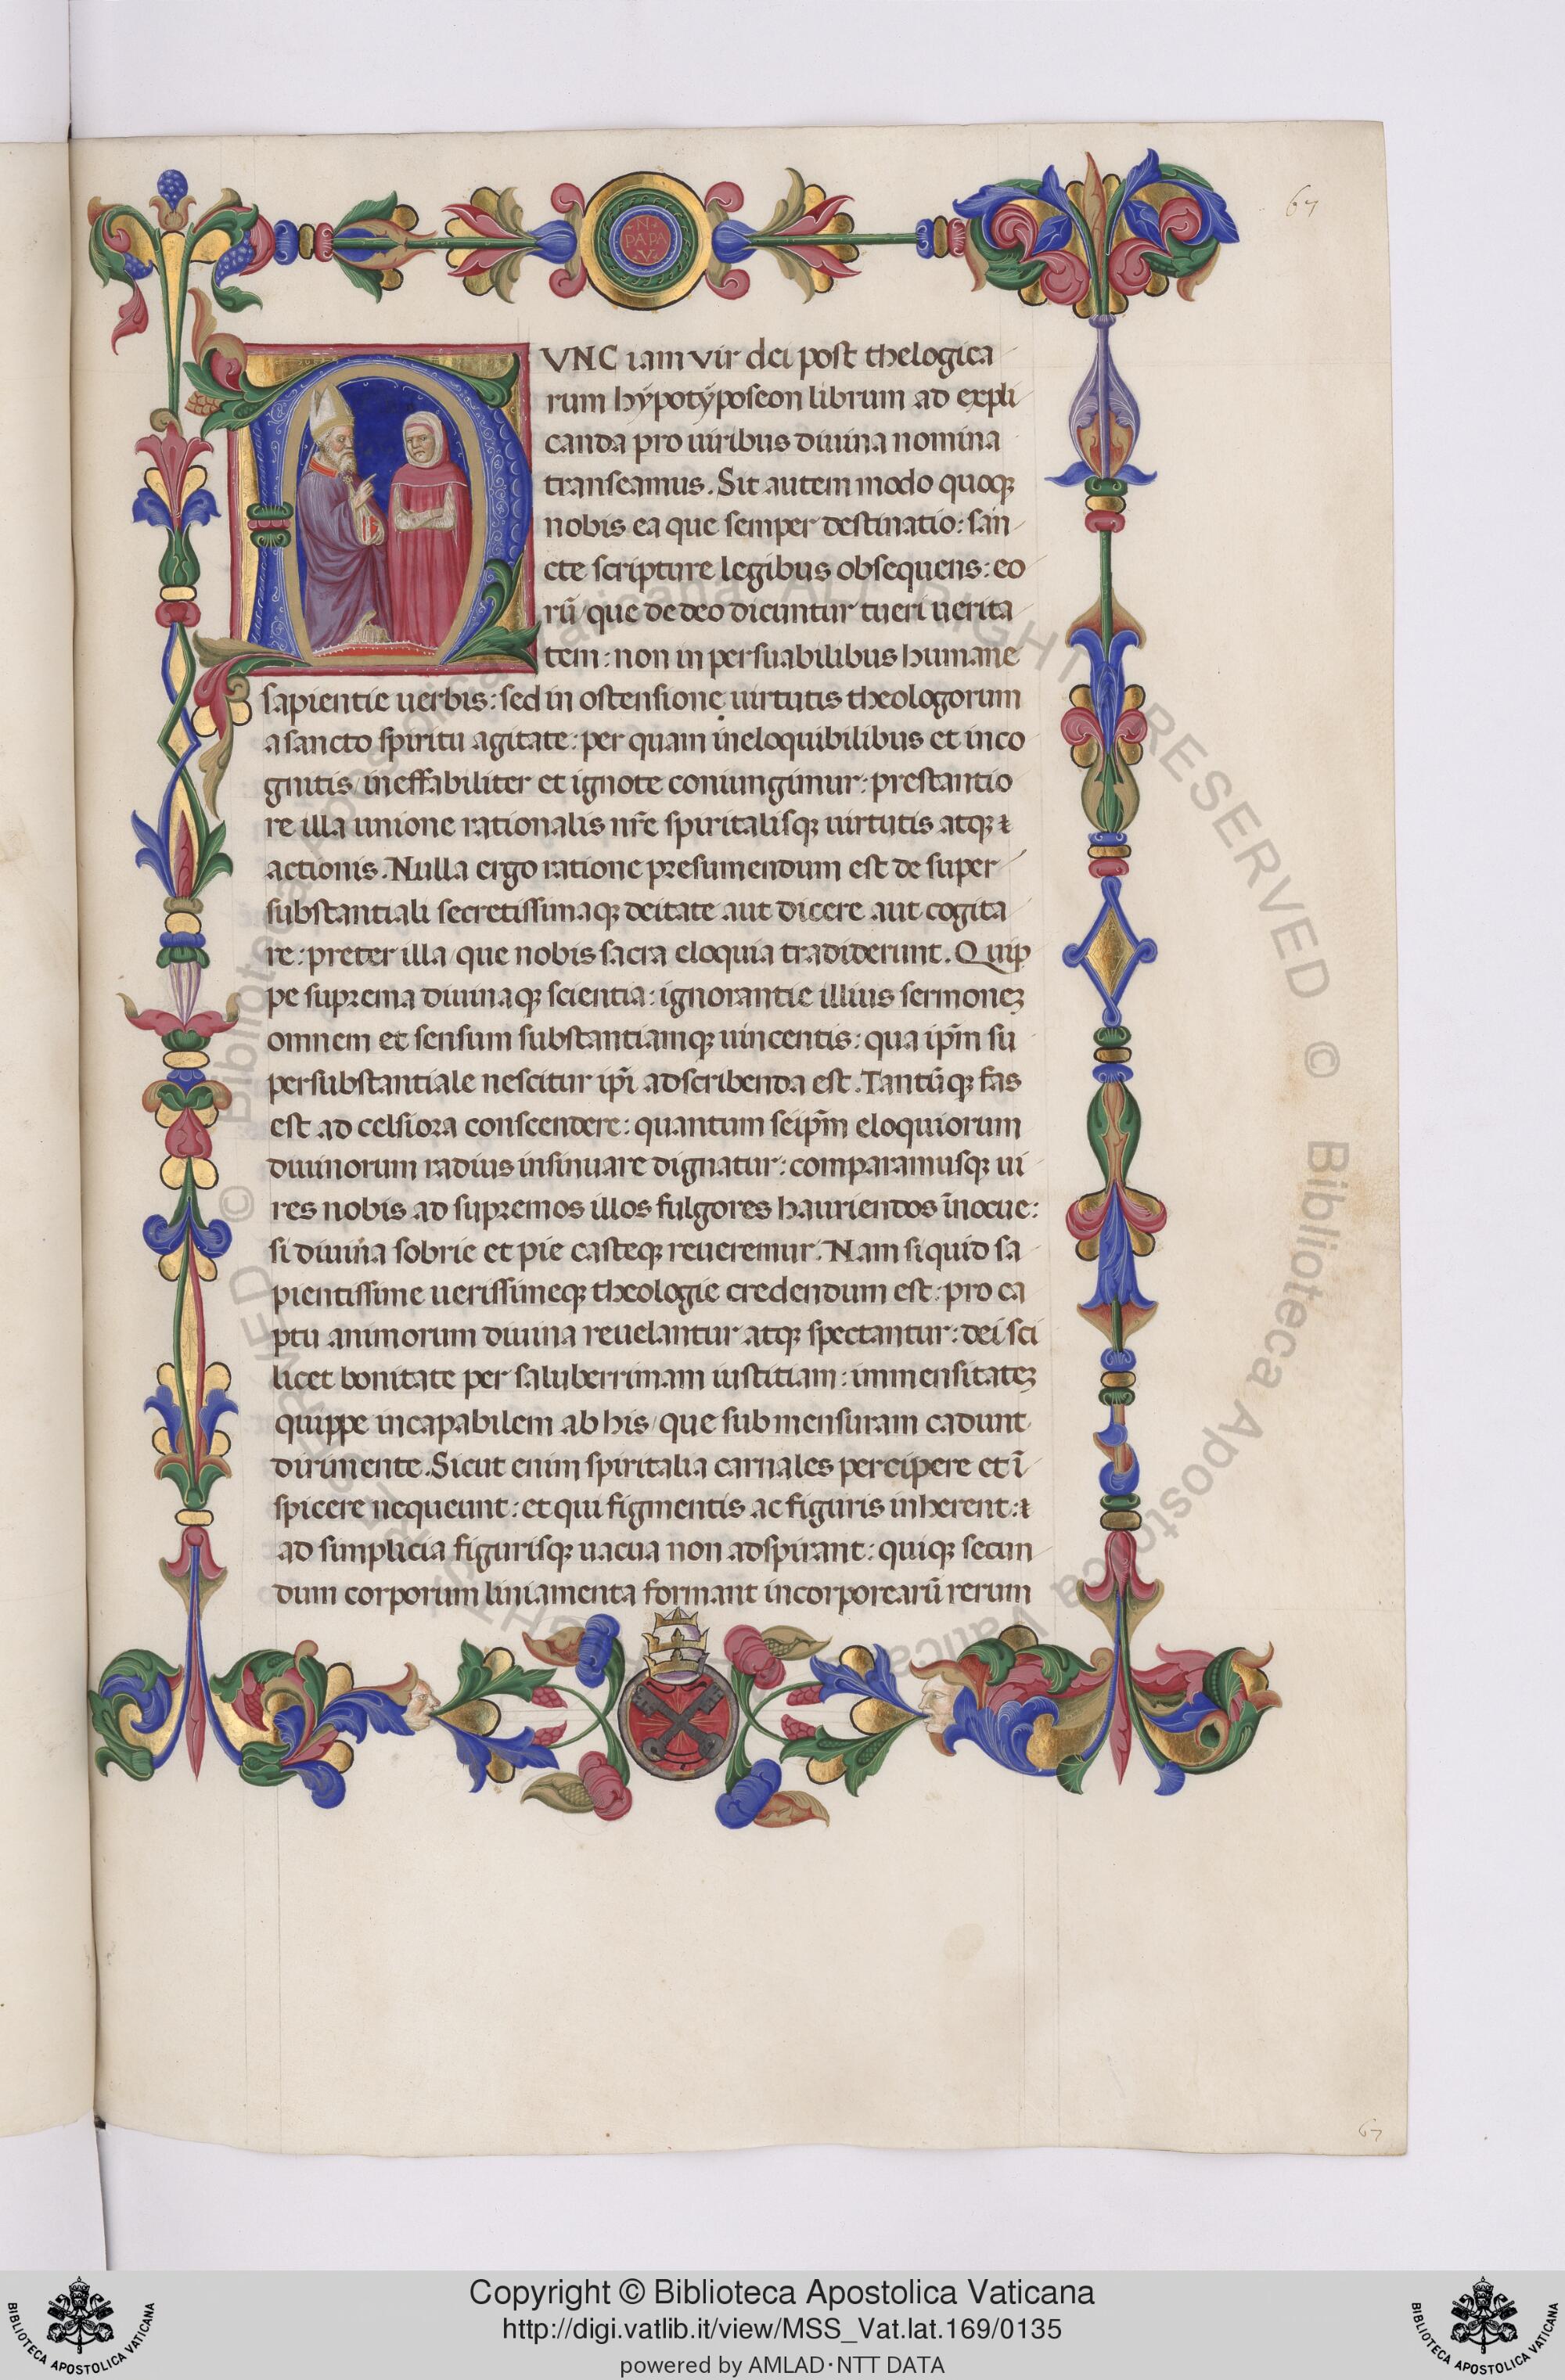 67
N
PAPA
V
VNC iam vir dei post thelogica
rum hypotyposeon librum ad expli
canda pro uiribus diuina nomina
transeamus. Sit autem modo quoqꝫ
nobis ea que semper destinatio: san
cte scripture legibus obsequens: eo
rū/ que de deo dicuntur tueri uerita
tem: non in persuabilibus humane
sapientie uerbis: sed in ostensione uirtutis theologorum
a sancto spiritu agitate: per quam ineloquibilibus et inco
gnitis/ ineffabiliter et ignote coniungimur: prestantio
re illa unione rationalis nr̄e spiritalisqꝫ uirtutis atqꝫ ⁊
actionis. Nulla ergo ratione presumendum est de super
substantiali secretissimaqꝫ deitate aut dicere aut cogita
re: preter illa/ que nobis sacra eloquia tradiderunt. Quip
pe suprema diuinaqꝫ scientia: ignorantie illius sermoneꝫ
omnem et sensum substantiamqꝫ uincentis: qua ip̄m su
persubstantiale nescitur ip̄i adscribenda est. Tantūqꝫ fas
est ad celsiora conscendere: quantum seip̄m eloquiorum
diuinorum radius insinuare dignatur: comparamusqꝫ ui
res nobis ad supremos illos fulgores hauriendos īnocue:
si diuina sobrie et pie casteqꝫ reueremur. Nam si quid sa
pientissime uerissimeqꝫ theologie credendum est: pro ca
ptu animorum diuina reuelantur atqꝫ spectantur: dei sci
licet bonitate per saluberrimam iustitiam: immensitateꝫ
quippe incapabilem ab his/ que sub mensuram cadunt
dirimente. Sicut enim spiritalia carnales percipere et ī
spicere nequeunt: et qui figmentis ac figuris inherent: ⁊
ad simplicia figurisqꝫ uacua non adspirant: quiqꝫ secun
dum corporum liniamenta formant incorporearū rerum
67
Copyright © Biblioteca Apostolica Vaticana
http://digi.vatlib.it/view/MSS_Vat.lat.169/0135
powered by AMLAD·NTT DATA
BIBLIOTECA APOSTOLICA VATICANA
BIBLIOTECA APOSTOLICA VATICANA